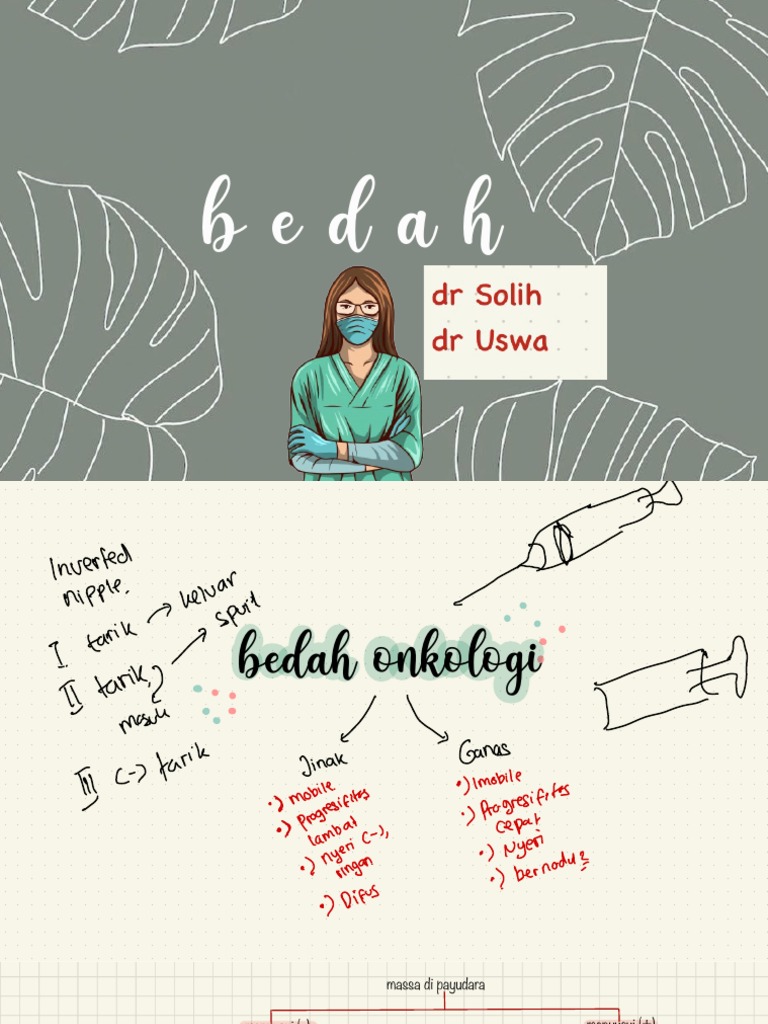 bedah
dr Solih
dr Uswa
Inverted
nipple.
I tarik → keluar
II tarik, → spuit
masuk
III (-) tarik
bedah onkologi
Jinak
•) mobile
•) Progresifitas
lambat
•) nyeri (-),
ringan
•) Difus
Ganas
•) Imobile
•) Progresifitas
cepat
•) Nyeri
•) bernodul2
massa di payudara